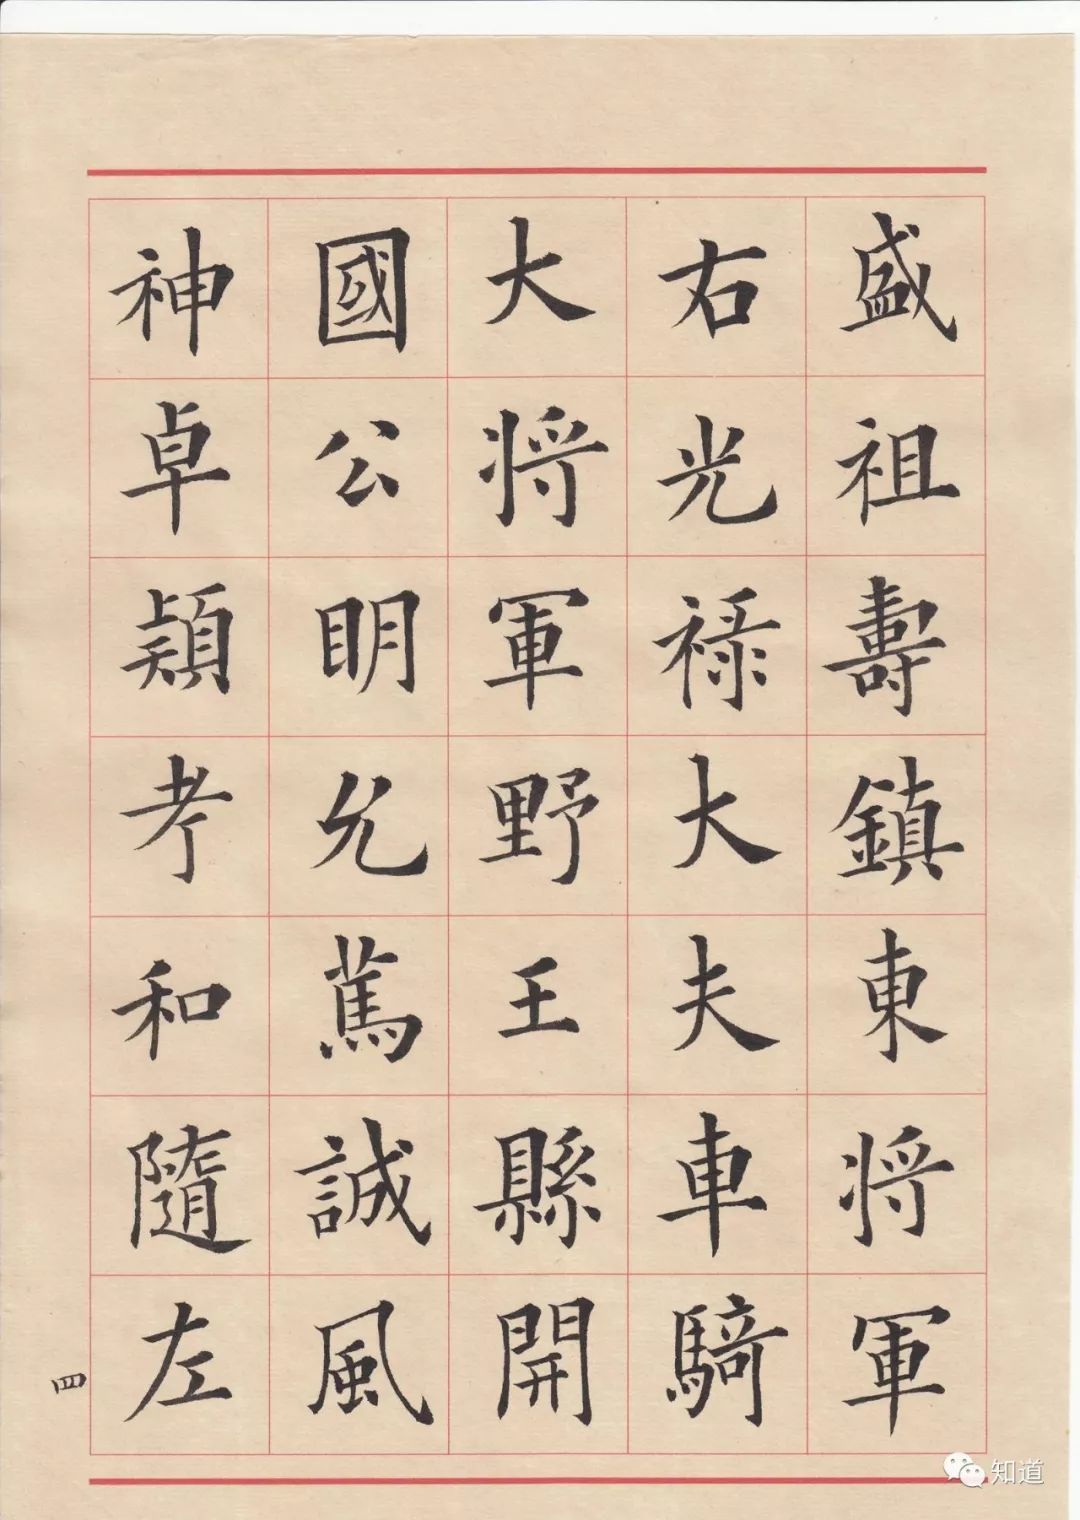 盛祖壽鎮東将軍
右光禄大夫車騎
大将軍野王縣開
國公明允篤誠風
神卓穎考和隨左
四
知道